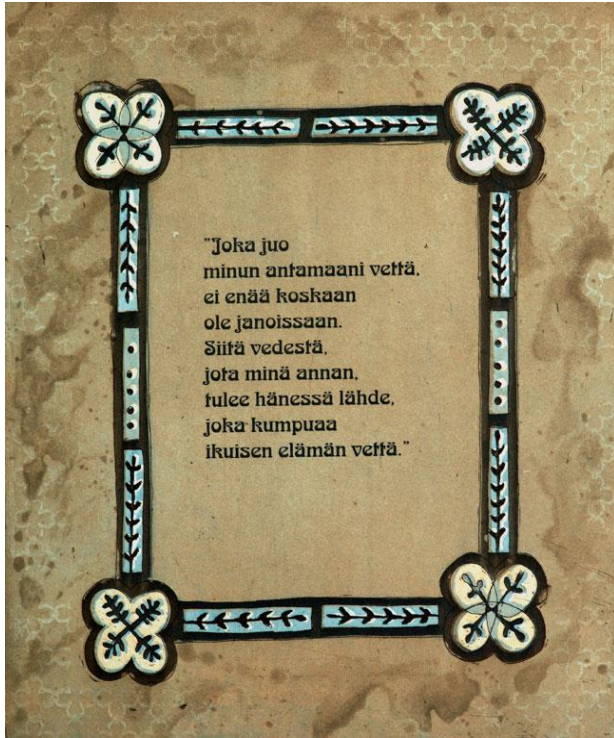 "Joka juo
minun antamaani vettä,
ei enää koskaan
ole janoissaan.
Siitä vedestä,
jota minä annan,
tulee hänessä lähde,
joka kumpuaa
ikuisen elämän vettä."